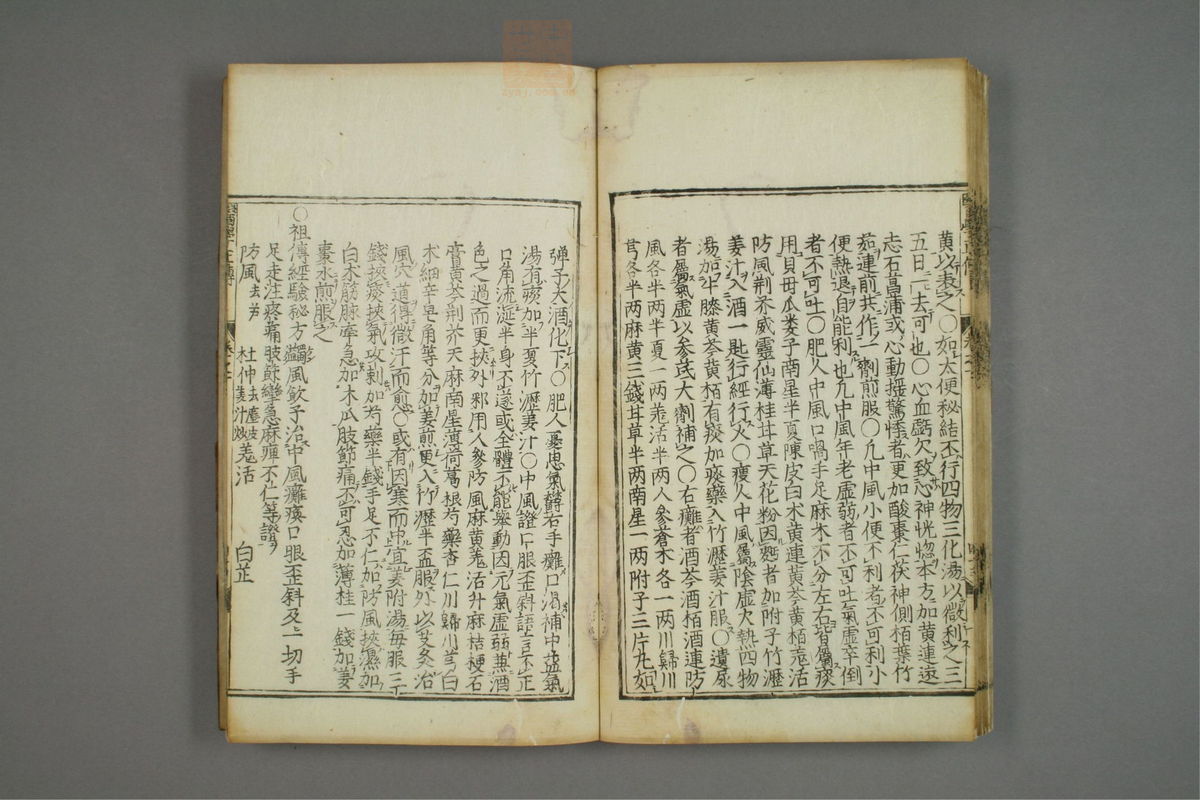 黄以表之○如大便秘結不行四物三化湯以微利之三
五日一去可也○心血虧欠致心神恍惚本方加黄連遠
志石菖蒲或心動揺驚悸者更加酸棗仁茯神側栢葉竹
茹連前共作一劑煎服○凡中風小便不利者不可利小
便熱退自能利也凡中風年老虚弱者不可吐氣虚卒倒
者不可吐○肥人中風口喎手足麻木不分左右皆屬痰
用貝母瓜蔞子南星半夏陳皮白朮黄連黄芩黄栢羗活
防風荆芥威靈仙薄桂甘草天花粉因麪者加附子竹瀝
姜汁入酒一匙行經行火○瘦人中風屬陰虚火熱四物
湯加牛膝黄芩黄栢有痰加痰藥入竹瀝姜汁服○遺尿
者屬氣虚以参芪大劑補之○右癱者酒芩酒栢酒連防
風各半两半夏一两羗活半两人參蒼朮各一两川歸川
芎各半两麻黄三錢甘草半两南星一两附子三片丸如
彈子大酒化下○肥人憂思氣欝右手癱口渴補中益氣
湯有痰加半夏竹瀝姜汁○中風證口眼歪斜語言不正
口角流涎半身不遂或全體不能舉動因元氣虚弱兼酒
色之過而更挾外邪用人參防風麻黄羗活升麻桔梗石
膏黄芩荆芥天麻南星薄荷葛根芍藥杏仁川歸川芎白
朮細辛皂角等分加姜煎更入竹瀝半盃服外以艾灸治
風穴道得微汗而愈○或有因寒而中宜姜附湯毎服三
錢挾痰挾氣攻刺加芍藥半錢手足不仁加防風挾濕加
白朮筋脉牽急加木瓜肢節痛不可忍加薄桂一錢加姜
棗水煎服之
○祖傳經驗秘方蠲風飲子治中風癱瘓口眼歪斜及一切手
足走注疼痛肢節攣急麻痺不仁等證
防風去芦 杜仲去麄皮姜汁炒 羗活 白芷